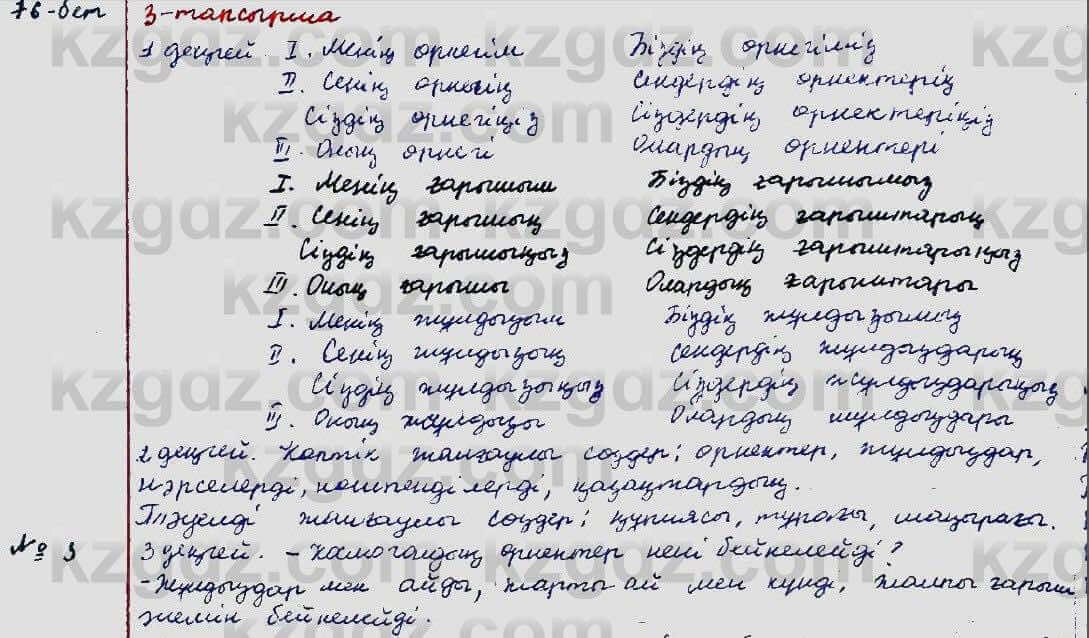 76-бет 3-тапсырма
1 деңгей. I. Менің өрнегім Біздің өрнегіміз
II. Сенің өрнегің Сендердің өрнектерің
Сіздің өрнегіңіз Сіздердің өрнектеріңіз
III. Оның өрнегі Олардың өрнектері
I. Менің ғарышым Біздің ғарышымыз
II. Сенің ғарышың Сендердің ғарыштарың
Сіздің ғарышыңыз Сіздердің ғарыштарыңыз
III. Оның ғарышы Олардың ғарыштары
I. Менің жұлдызым Біздің жұлдызымыз
II. Сенің жұлдызың Сендердің жұлдыздарың
Сіздің жұлдызыңыз Сіздердің жұлдыздарыңыз
III. Оның жұлдызы Олардың жұлдыздары
2 деңгей. Көптік жалғаулы сөздер: өрнектер, жұлдыздар,
нәрселерді, көшпенділерді, қазақтардың.
Тәуелді жалғаулы сөздер: құпиясы, тұрағы, шаңырағы.
№ 3 3 деңгей. – Космогалдық өрнектер нені бейнелейді?
- Жұлдыздар мен айды, жарты ай мен күнді, жалпы ғарыш
әлемін бейнелейді.
kzgdz.com